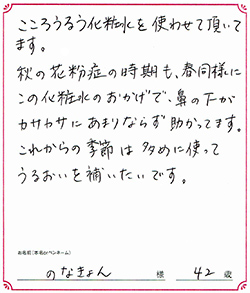 こころうるう化粧水を使わせて頂いて
ます。
秋の花粉症の時期も、春同様に
この化粧水のおかげで、鼻の下が
カサカサにあまりならず助かってます。
これからの季節は多めに使って
うるおいを補いたいです。
お名前(本名orペンネーム)
のなきょん 様 42歳